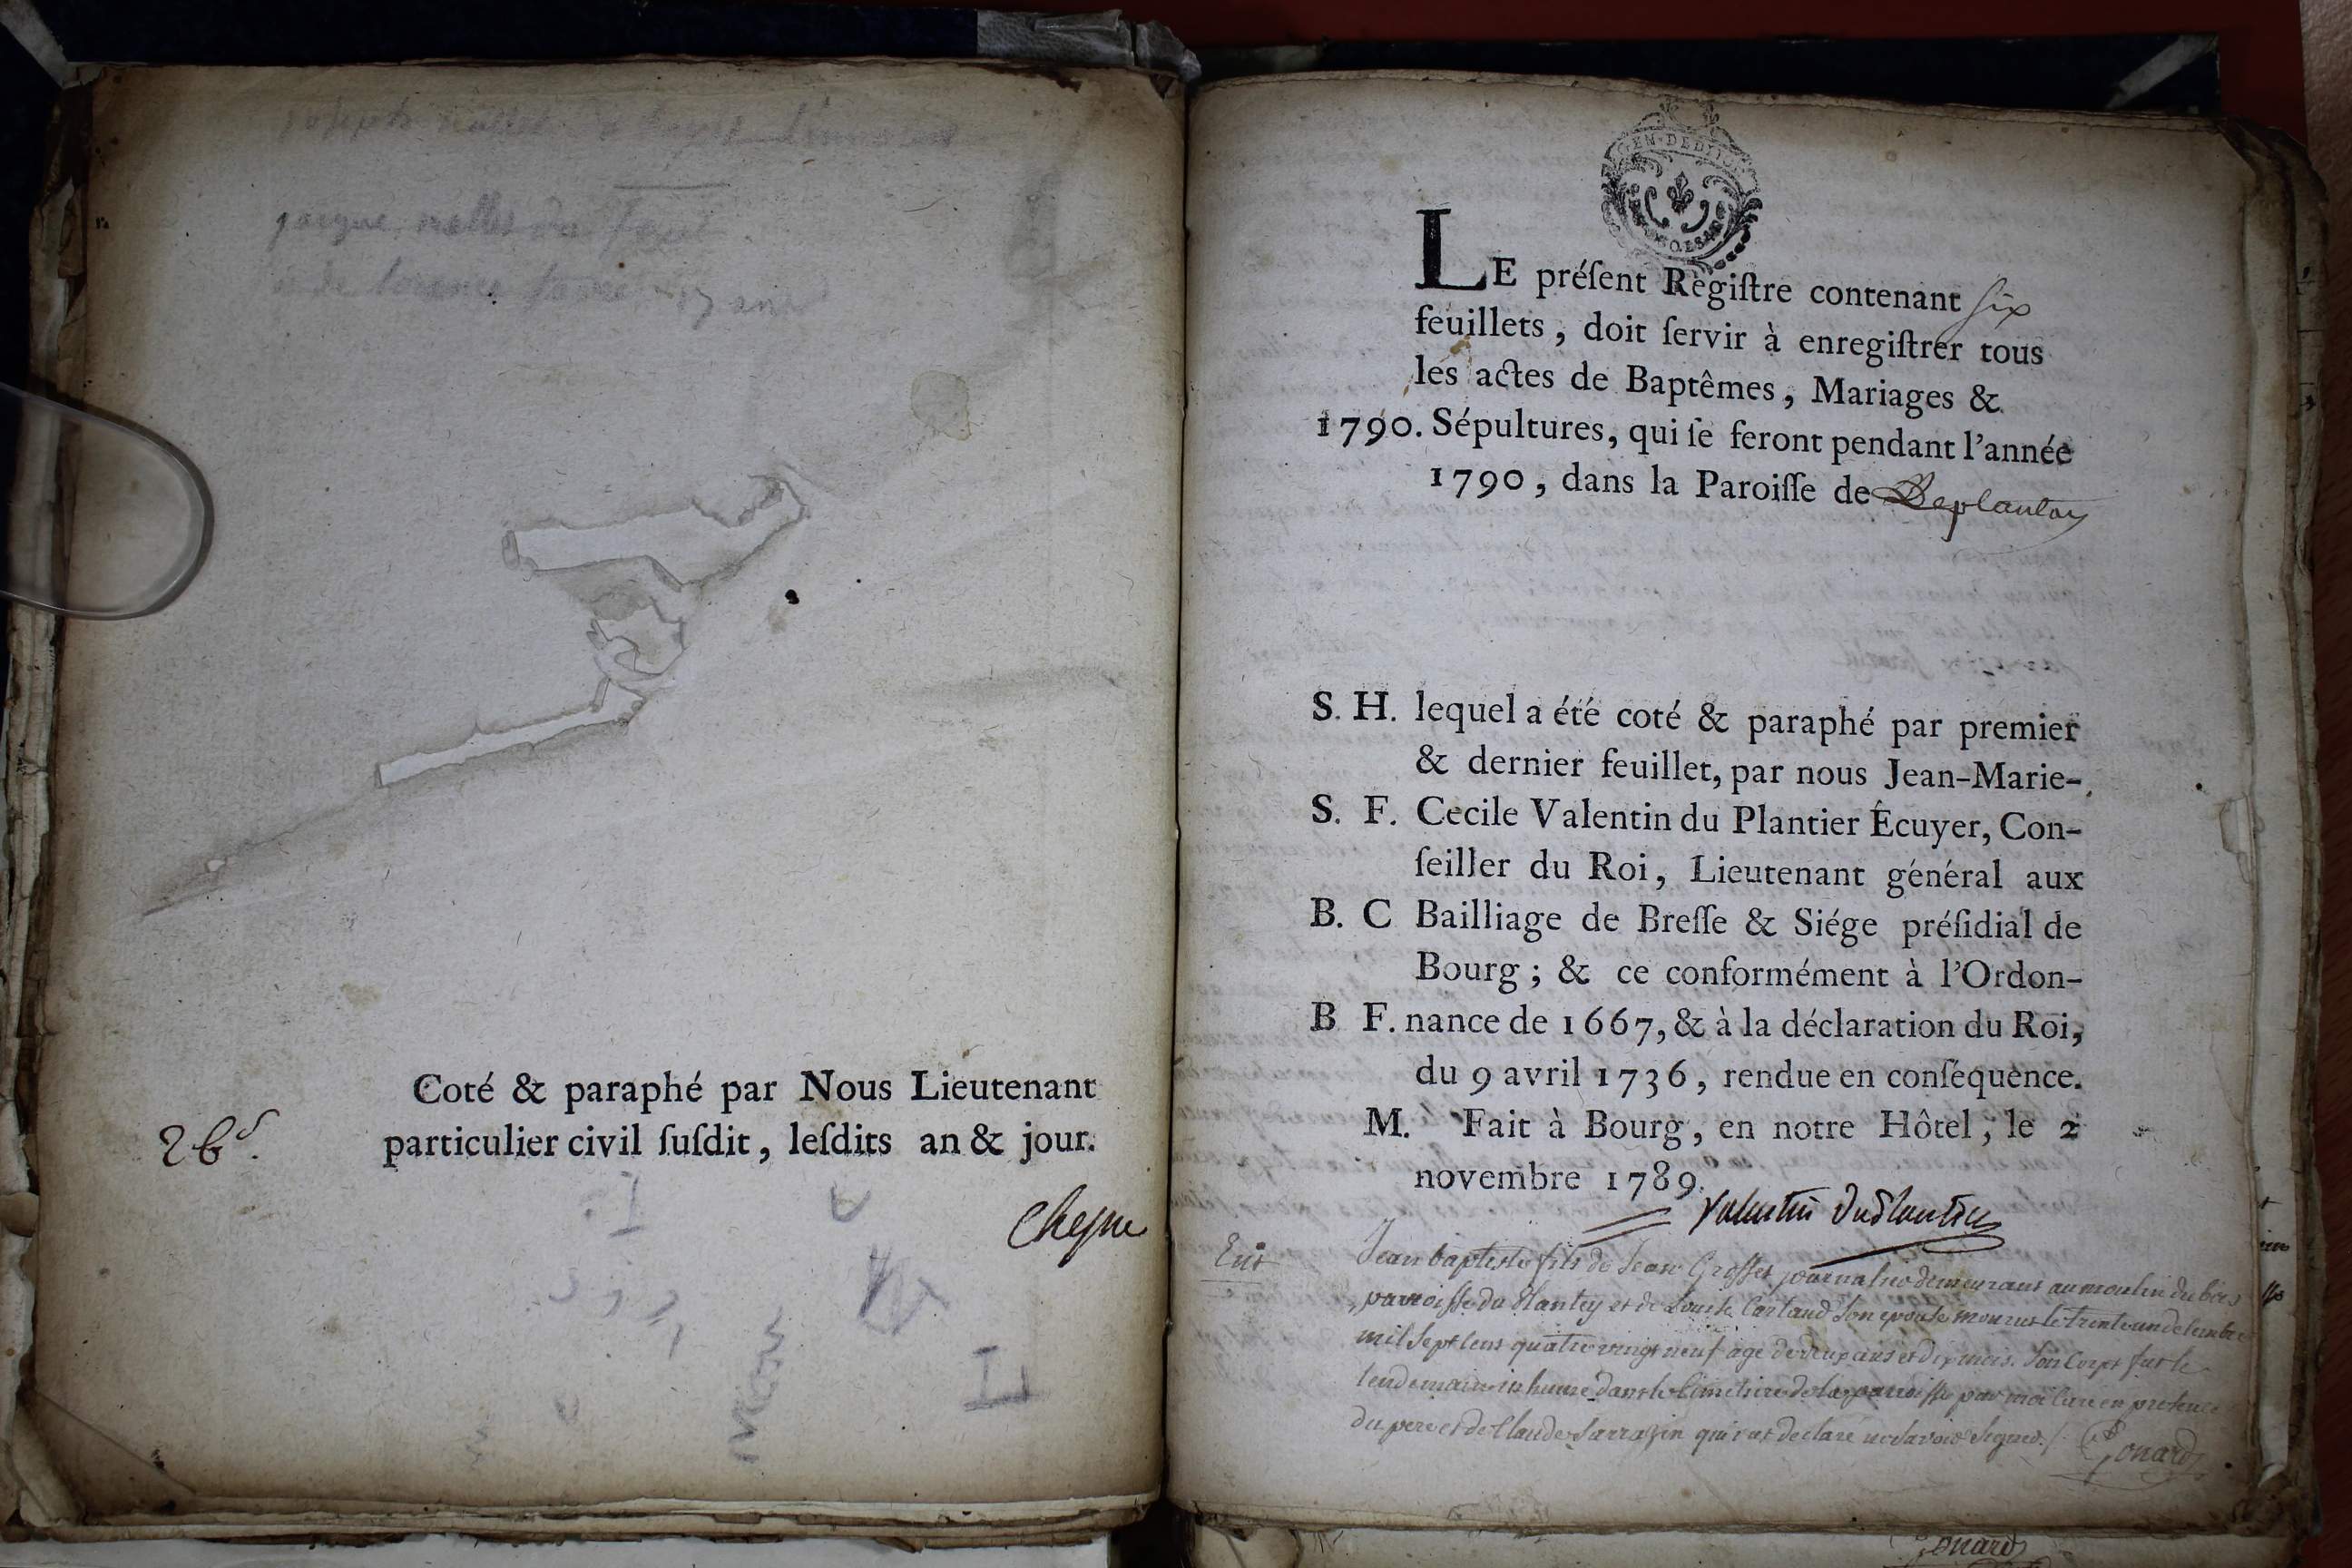 jacque
de
Coté & paraphé par Nous Lieutenant
particulier civil ſuſdit, leſdits an & jour.
26ˢ.
Cheyne
GEN. DE DIJON
LE préſent Regiſtre contenant six
feuillets, doit ſervir à enregiſtrer tous
les actes de Baptêmes, Mariages &
1790. Sépultures, qui ſe feront pendant l'année
1790, dans la Paroiſſe de Duplantay
S. H. lequel a été coté & paraphé par premier
& dernier feuillet, par nous Jean-Marie-
S. F. Cecile Valentin du Plantier Écuyer, Con-
ſeiller du Roi, Lieutenant général aux
B. C Bailliage de Breſſe & Siége préſidial de
Bourg; & ce conformément à l'Ordon-
B F. nance de 1667, & à la déclaration du Roi,
du 9 avril 1736, rendue en conſéquence.
M. Fait à Bourg, en notre Hôtel, le 2
novembre 1789.
Valentin Duplantier
Jean baptiste fils de Jean Grosset journalier demeurant au moulin du bois
parroisse du Plantey et de Louise Cartaud son epouse mourut le trente un decembre
mil sept cens quatre vingt neuf agé de deux ans et dix mois. Son corps fut le
lendemain inhumé dans le cimetiere de la parroisse par moi curé en presence
du pere et de Claude Sarrazin qui ont declaré ne savoir signer./.
Gonard
Gonard